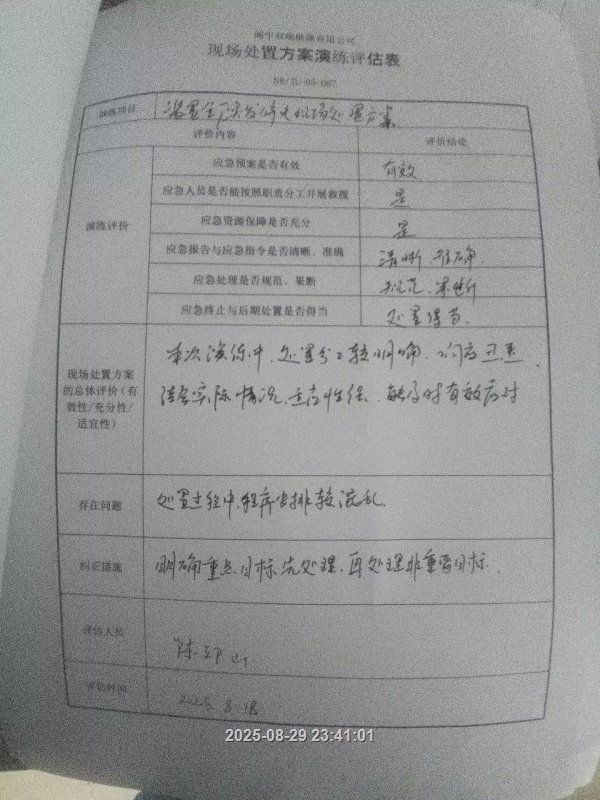 现场处置方案演练评估表
演练项目
评价内容 评价结论
演练评价
应急预案是否有效 有效
应急人员是否能按照职责分工开展救援 是
应急资源保障是否充分 是
应急报告与应急指令是否清晰、准确 清晰、准确
应急处理是否规范、果断 规范、果断
应急终止与后期处置是否得当 处置得当
现场处置方案
的总体评价(有
效性/充分性/
适宜性)
本次演练中,处置分工较明确,响应迅速,
结合实际情况,适应性强,能及时有效应对
存在问题 处置过程中,程序安排较混乱
纠正措施 明确重点目标先处理,再处理非重要目标.
评估人员
评估时间 2025.8.18
2025-08-29 23:41:01